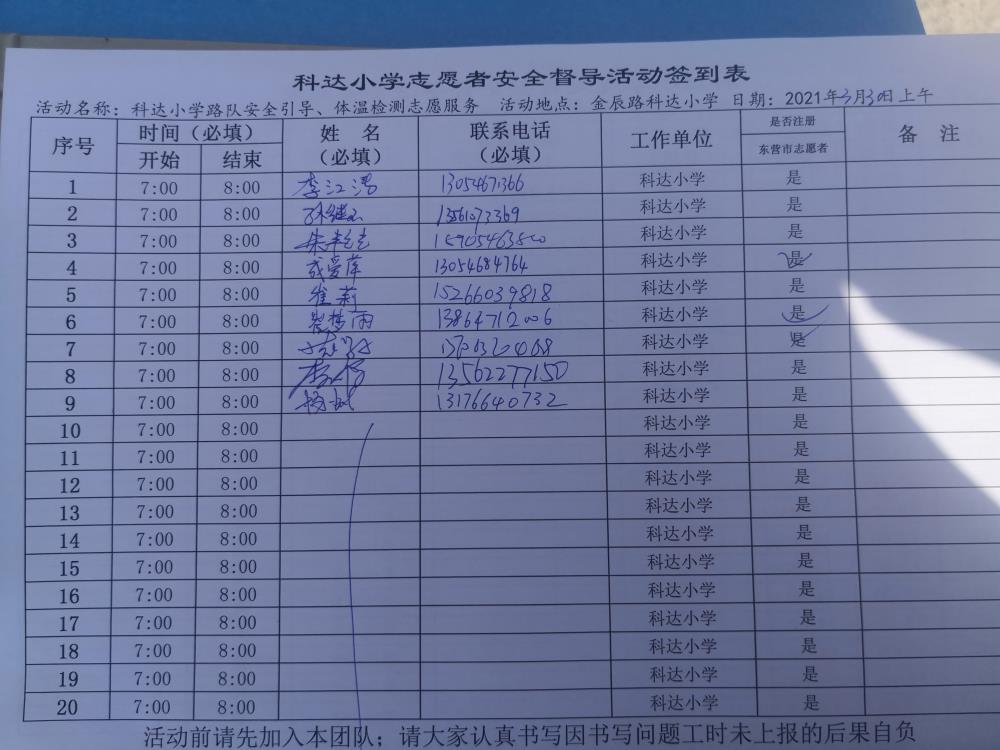 科达小学志愿者安全督导活动签到表
活动名称：科达小学路队安全引导、体温检测志愿服务 活动地点：金辰路科达小学 日期：2021年3月30日上午
序号 时间（必填） 姓 名（必填） 联系电话（必填） 工作单位 是否注册 备 注
开始 结束 东营市志愿者
1 7:00 8:00 李江 13054671366 科达小学 是
2 7:00 8:00 科达小学 是
3 7:00 8:00 朱 科达小学 是
4 7:00 8:00 成爱萍 13054684764 科达小学 是
5 7:00 8:00 崔莉 15266039818 科达小学 是
6 7:00 8:00 梦雨 13864712006 科达小学 是
7 7:00 8:00 科达小学 是
8 7:00 8:00 李 13562277150 科达小学 是
9 7:00 8:00 杨 13176640732 科达小学 是
10 7:00 8:00 科达小学 是
11 7:00 8:00 科达小学 是
12 7:00 8:00 科达小学 是
13 7:00 8:00 科达小学 是
14 7:00 8:00 科达小学 是
15 7:00 8:00 科达小学 是
16 7:00 8:00 科达小学 是
17 7:00 8:00 科达小学 是
18 7:00 8:00 科达小学 是
19 7:00 8:00 科达小学 是
20 7:00 8:00 科达小学 是
活动前请先加入本团队；请大家认真书写因书写问题工时未上报的后果自负